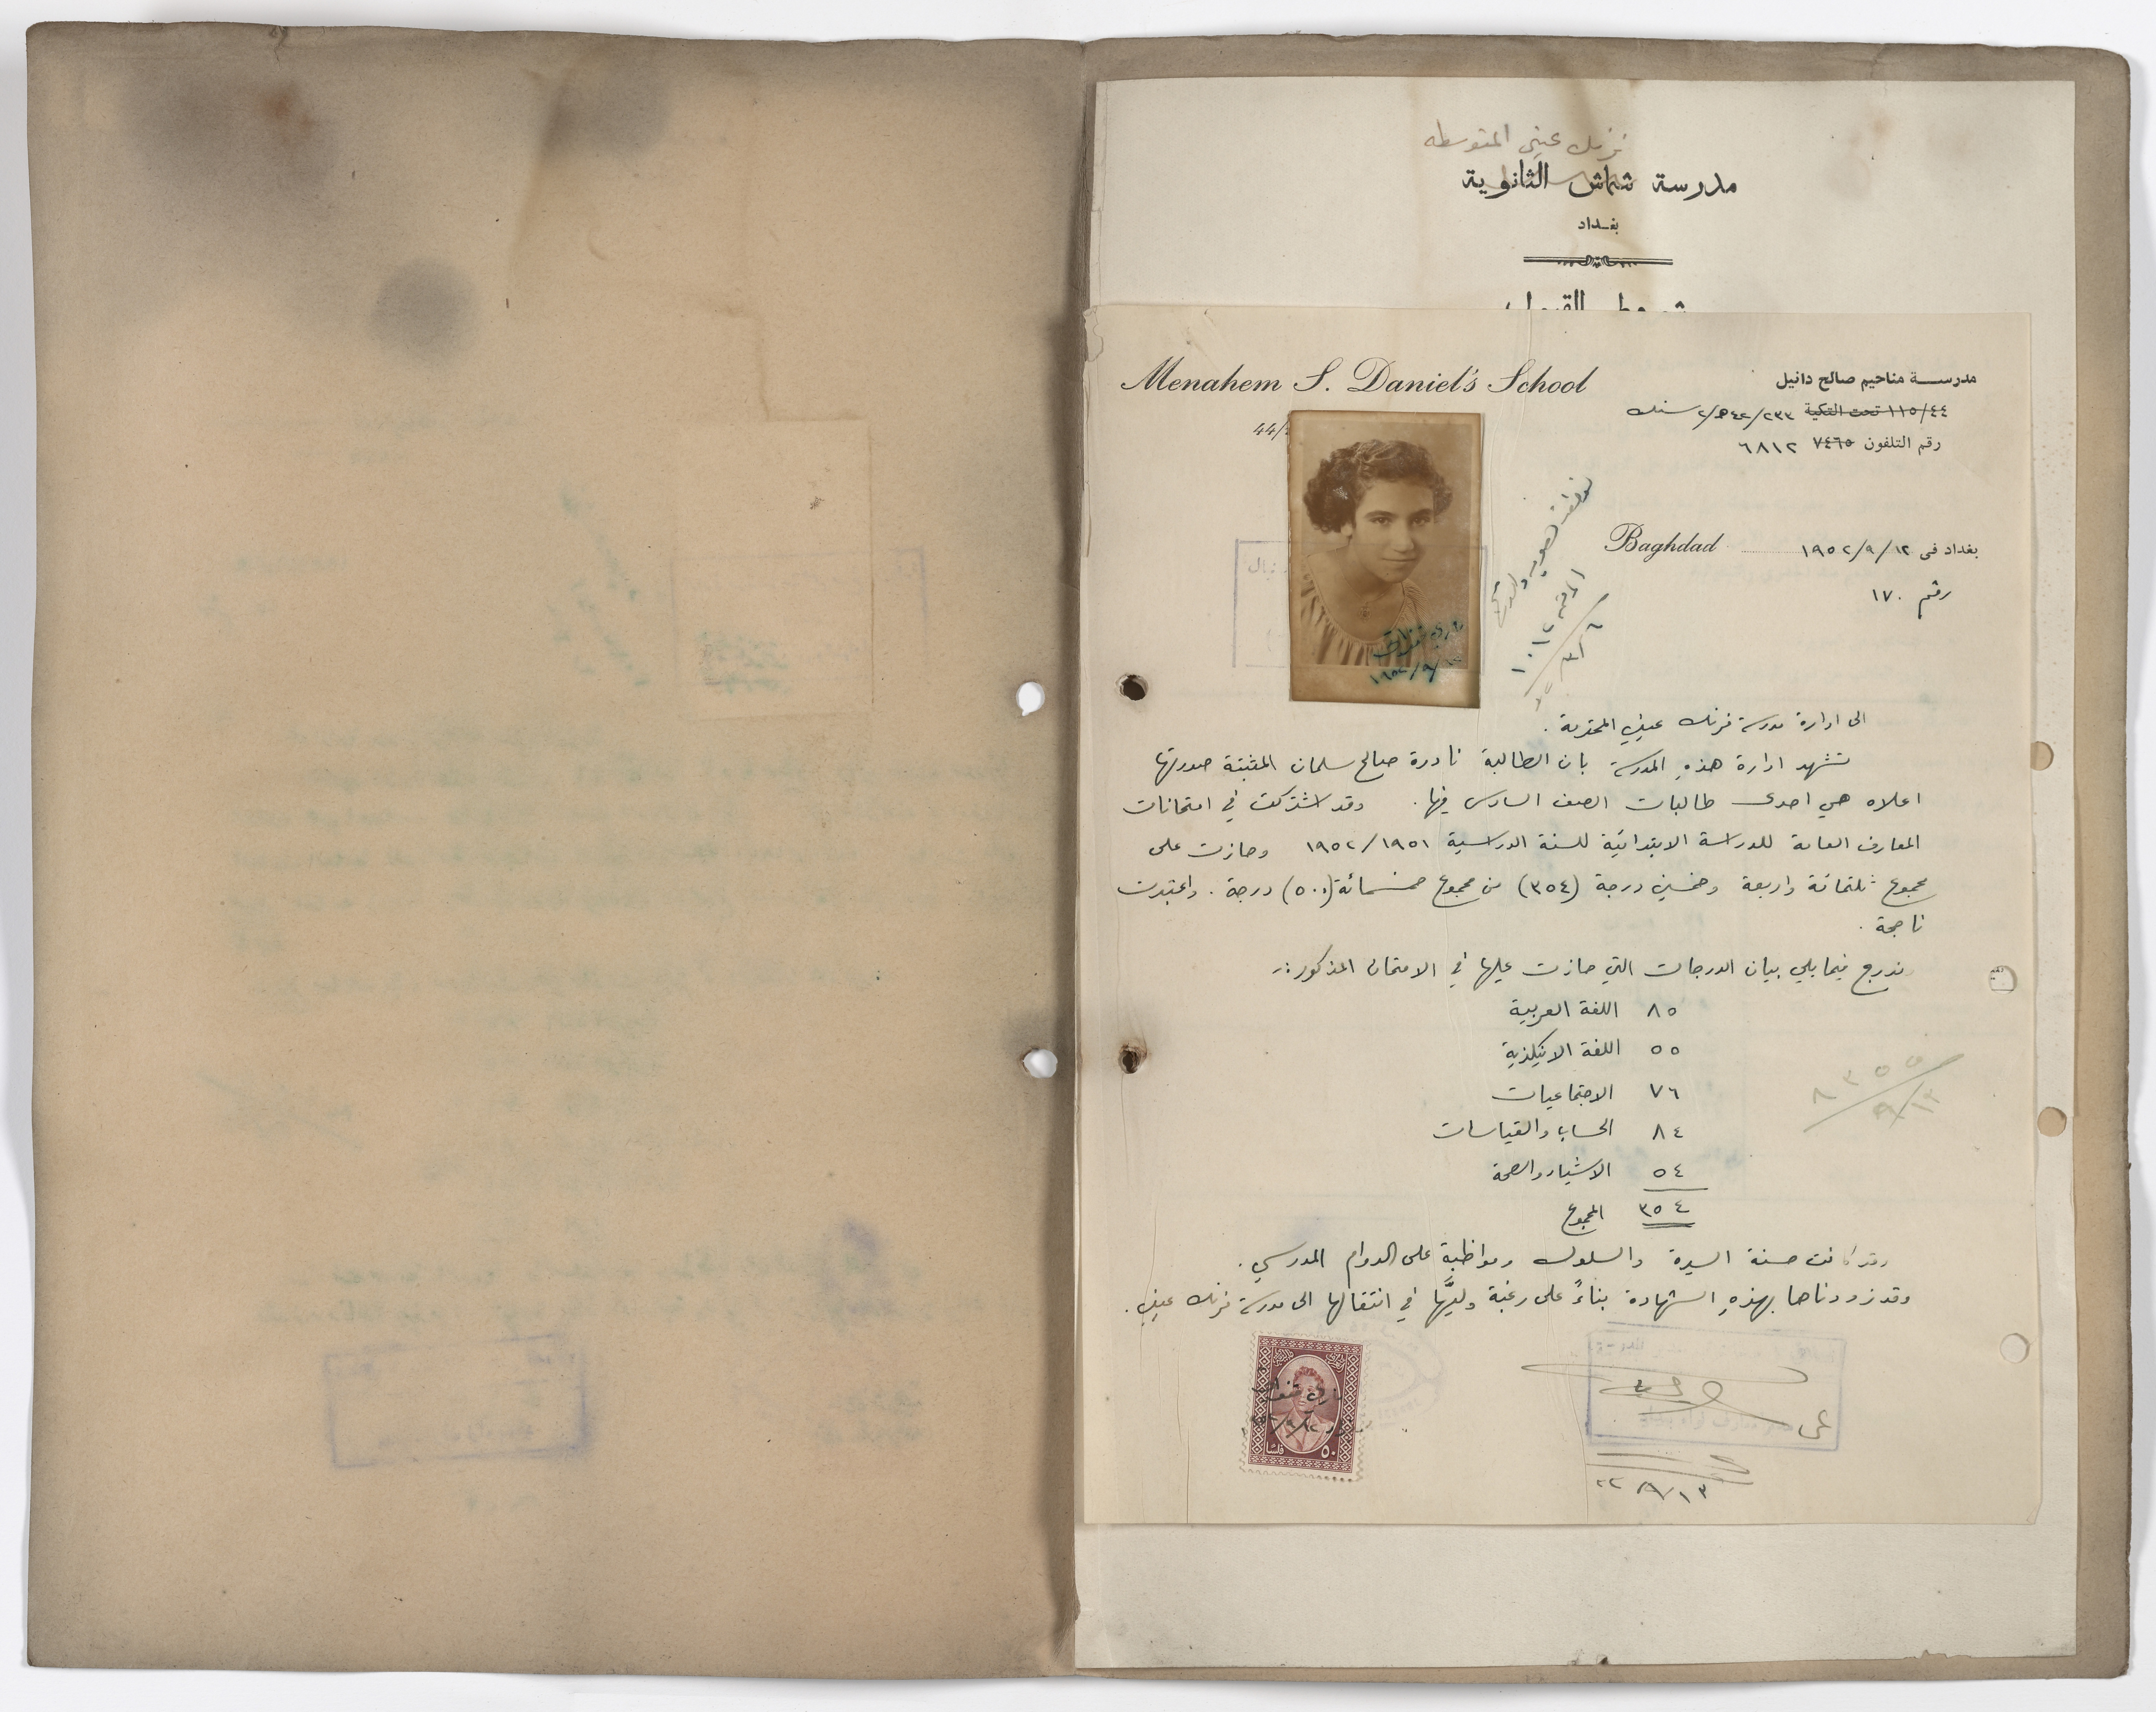 فرنك عيني المتوسطه
مدرسة شماش الثانوية
بغداد
شروط القبول
Menahem S. Daniel's School
مدرسة مناحيم صالح دانيل
١١٥/٤٤ تحت التكية ٢٣٣/٤٢
44/
رقم التلفون ٧٤٦٥ ٦٨١٢
Baghdad
بغداد في ١٢/٩/١٩٥٢
رقم ١٧٠
الى ادارة مدرسة فرنك عيني المحترمة .
تشهد ادارة هذه المدرسة بان الطالبة نادرة صالح سلمان المثبتة صورتها
اعلاه هي احدى طالبات الصف السادس فيها . وقد اشتركت في امتحانات
المعارف العامة للدراسة الابتدائية للسنة الدراسية ١٩٥١/١٩٥٢ وحازت على
مجموع ثلثمائة واربعة وخمسين درجة (٣٥٤) من مجموع خمسمائة (٥٠٠) درجة . واعتبرت
ناجحة .
وندرج فيما يلي بيان الدرجات التي حازت عليها في الامتحان المذكور :-
٨٥ اللغة العربية
٥٥ اللغة الانكليزية
٧٦ الاجتماعيات
٨٤ الحساب والقياسات
٥٤ الاشياء والصحة
٣٥٤ المجموع
وقد كانت حسنة السيرة والسلوك ومواظبة على الدوام المدرسي .
وقد زودناها بهذه الشهادة بناءً على رغبة وليّها في انتقالها الى مدرسة فرنك عيني .
٨٣٥٥
٩/١٣
٥٠ فلسا
٩/١٣